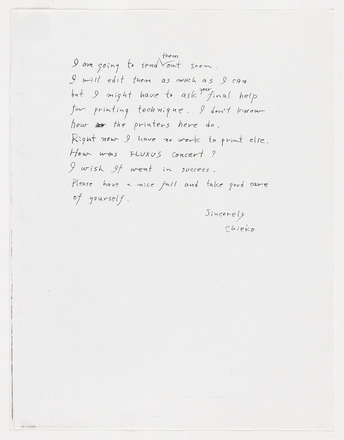 I am going to send them out soon.
I will edit them as much as I can
but I might have to ask your final help
for printing technique. I don't know
how the printers here do.
Right now I have no work to print else.
How was FLUXUS concert?
I wish it went in success.
Please have a nice fall and take good care
of yourself.
Sincerely
Chieko